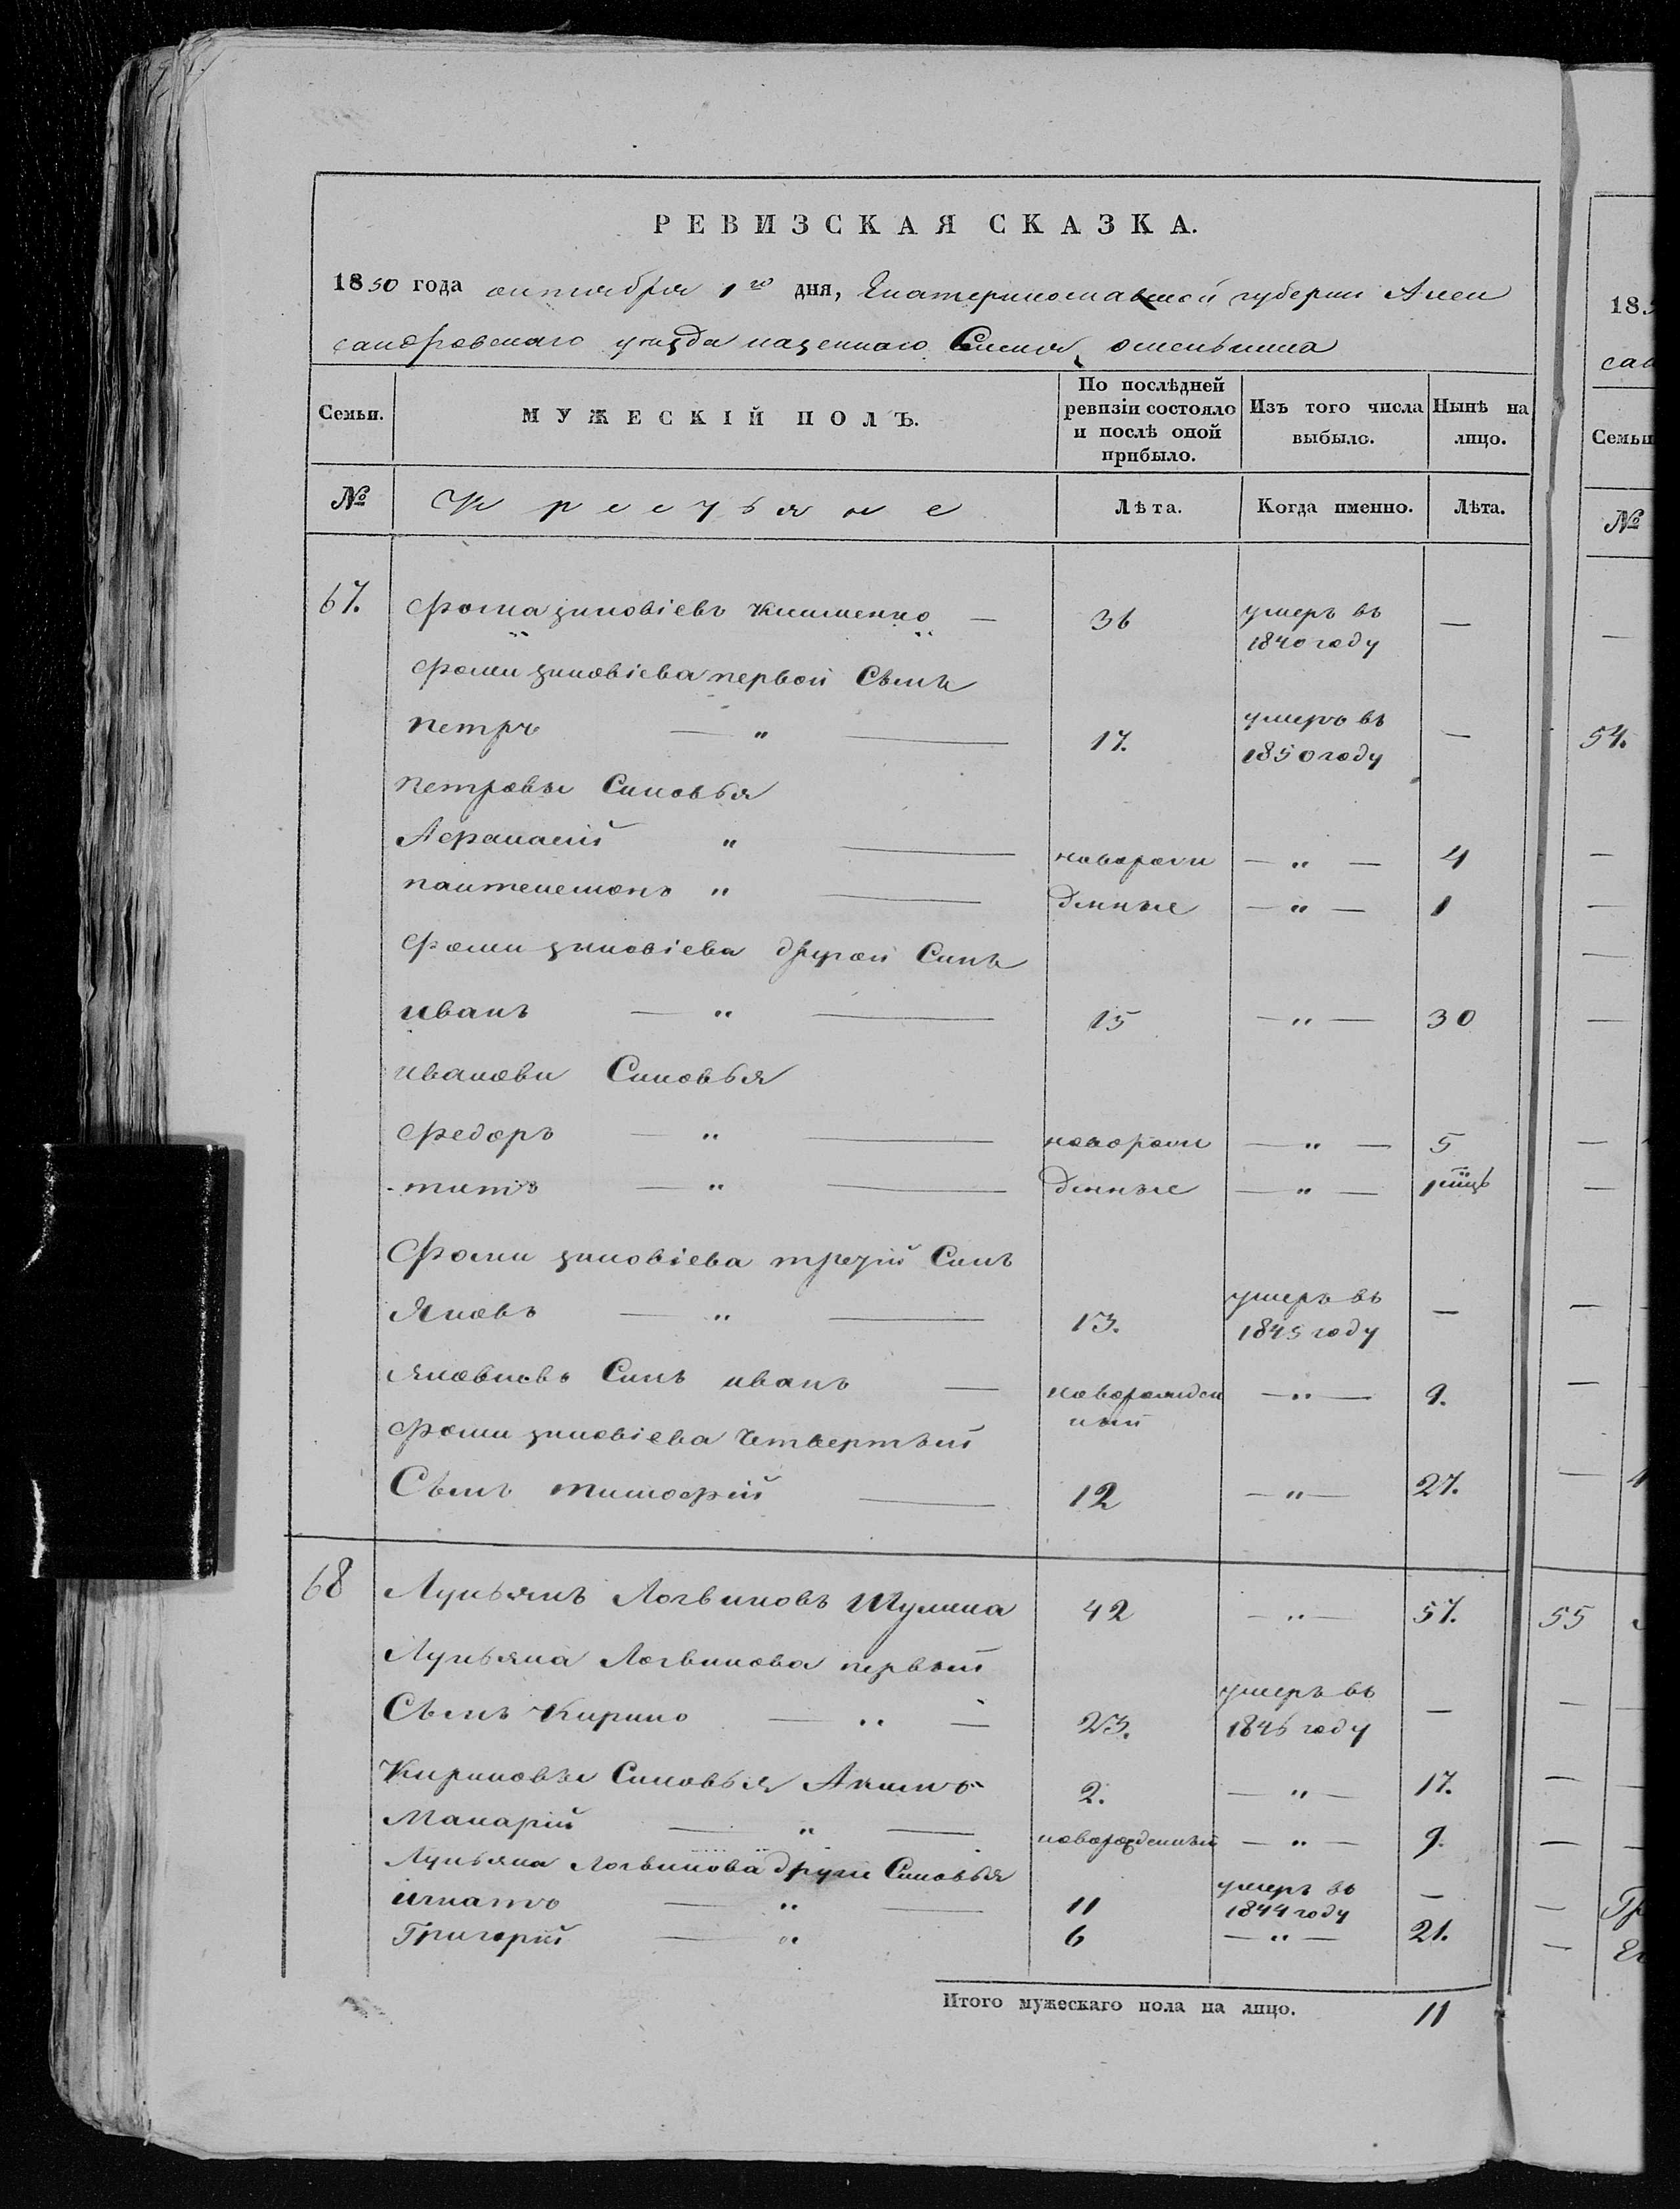 РЕВИЗСКАЯ СКАЗКА.
1850 года октября 1го дня, Екатеринославской губернии Алек
сандровскаго уезда казеннаго Селенія
Семьи. МУЖЕСКІЙ ПОЛЪ. По послѣдней ревизіи состояло и послѣ оной прибыло. Изъ того числа выбыло. Нынѣ на лицо.
№ Крестьяне Лѣта. Когда именно. Лѣта.
67. Фома зиновіевъ — 36 умеръ въ 1840 году —
Фоми зиновіева первой Сынъ
петръ — " — 17. умеръ въ 1850 году —
петровы Синовья
Афанасий " — новорож — " — 4
пантелемонъ " — денные — " — 1
Фоми зиновіева другой Синъ
иванъ — " — 15 — " — 30
иванови Синовья
Федоръ — " — новорож — " — 5
титъ — " — денные — " — 1 мцъ
Фоми зиновіева третій Синъ
Яковъ — " — 13. умеръ въ 1845 году —
Яковлевъ Синъ иванъ — новорожден ный — " — 9.
Фоми зиновіева Четвертый
Сынъ тимофій — 12 — " — 27.
68 Лукьянъ Логвиновъ — 42 — " — 57.
Лукьяна Логвинова первый
Сынъ Кирило — " — 23. умеръ въ 1846 году —
Кириловы Синовья Акимъ 2. — " — 17.
Макарій — " — новорожденный — " — 9.
Лукьяна Логвинова други Синовья
игнатъ — " — 11 умеръ въ 1844 году —
Григорій — " 6 — " — 21.
Итого мужескаго пола на лицо. 11
185
сан
Семьи
№
54.
55